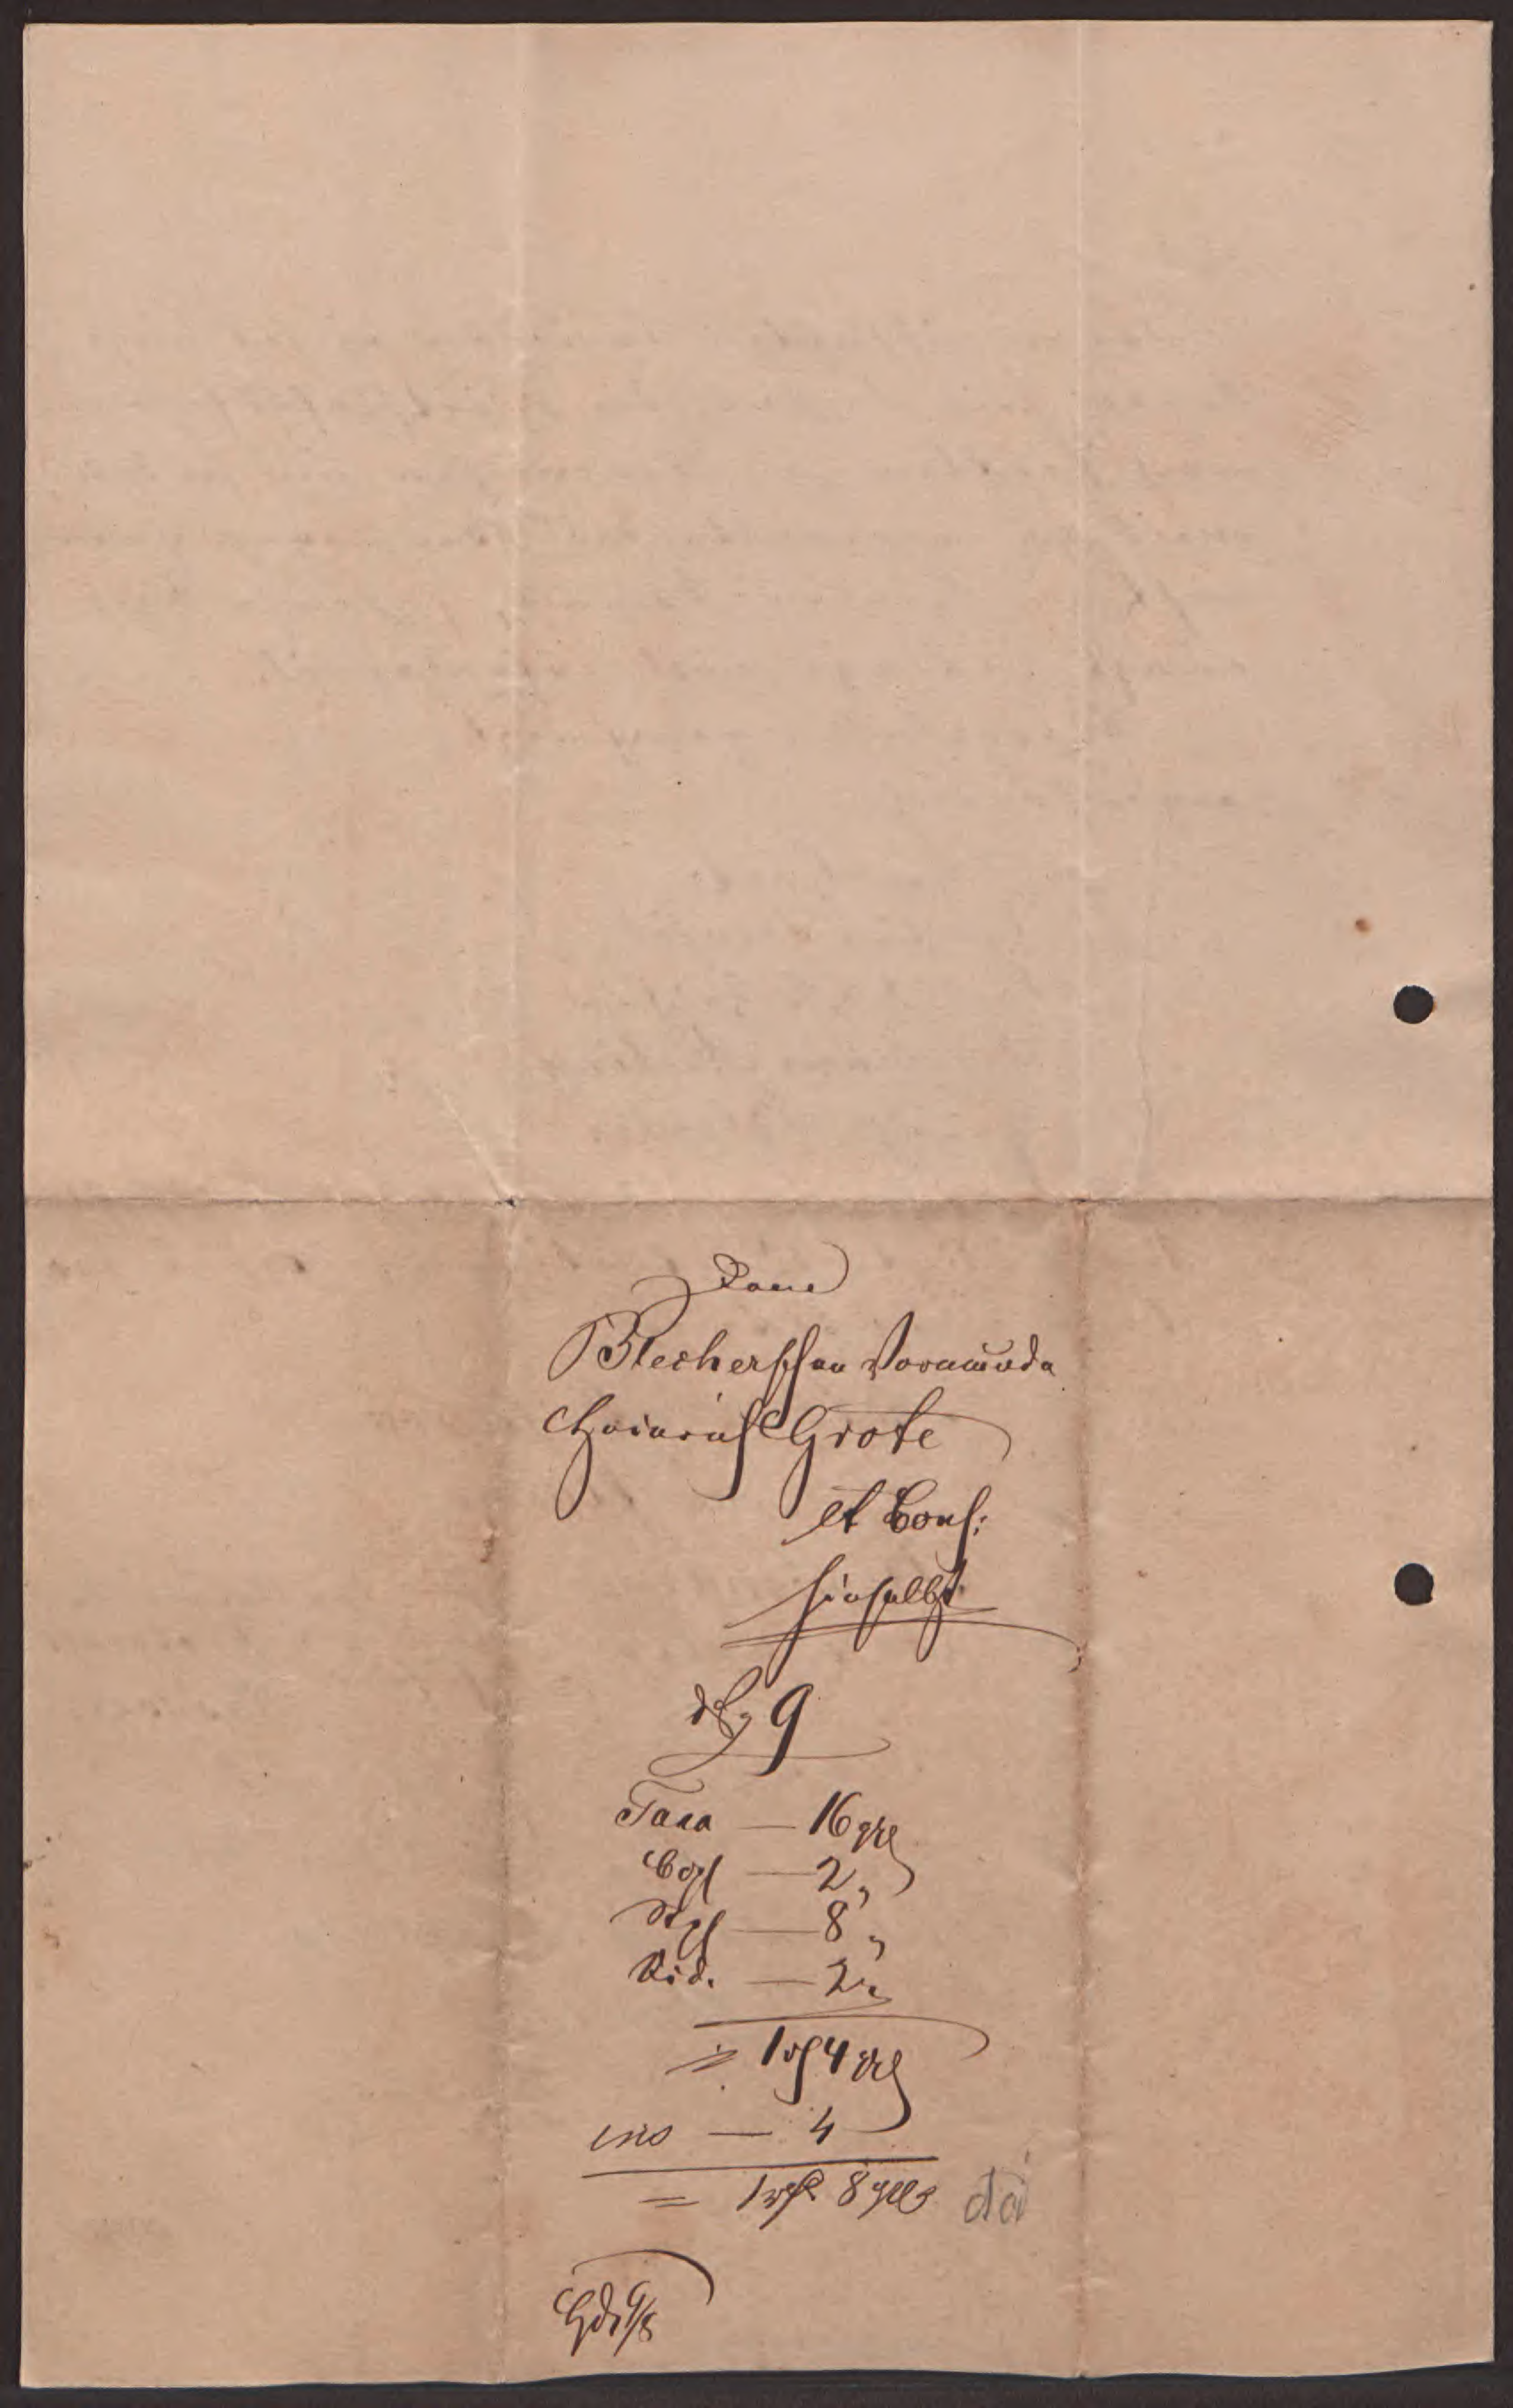 Dem
Blecherschen Vormunde
Heinrich Grote
et Cons:
hieselbst
9
Taxa — 16 gr
Cop — 2 „
Stpl — 8 „
Bid. — 2 „
= 1 rf 4 gr
ins — 4
= 1 rf 8 gr